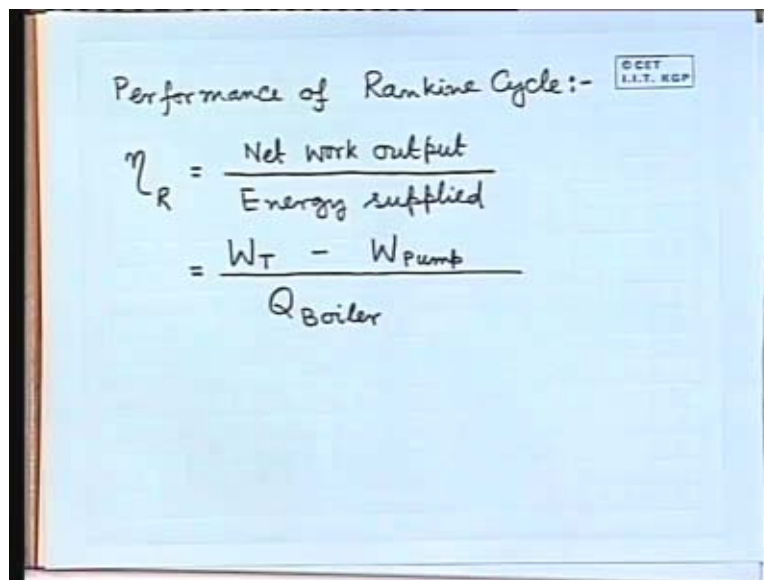 Performance of Rankine Cycle:-
© CET
I.I.T. KGP
η_R = Net work output / Energy supplied
= W_T - W_Pump / Q_Boiler